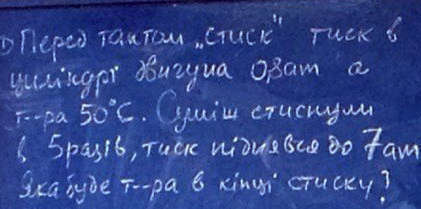 1) Перед тактом „стиск" тиск в
циліндрі двигуна 0,8ат а
т--ра 50°С. Суміш стиснули
в 5разів, тиск піднявся до 7ат
Яка буде т--ра в кінці стиску?